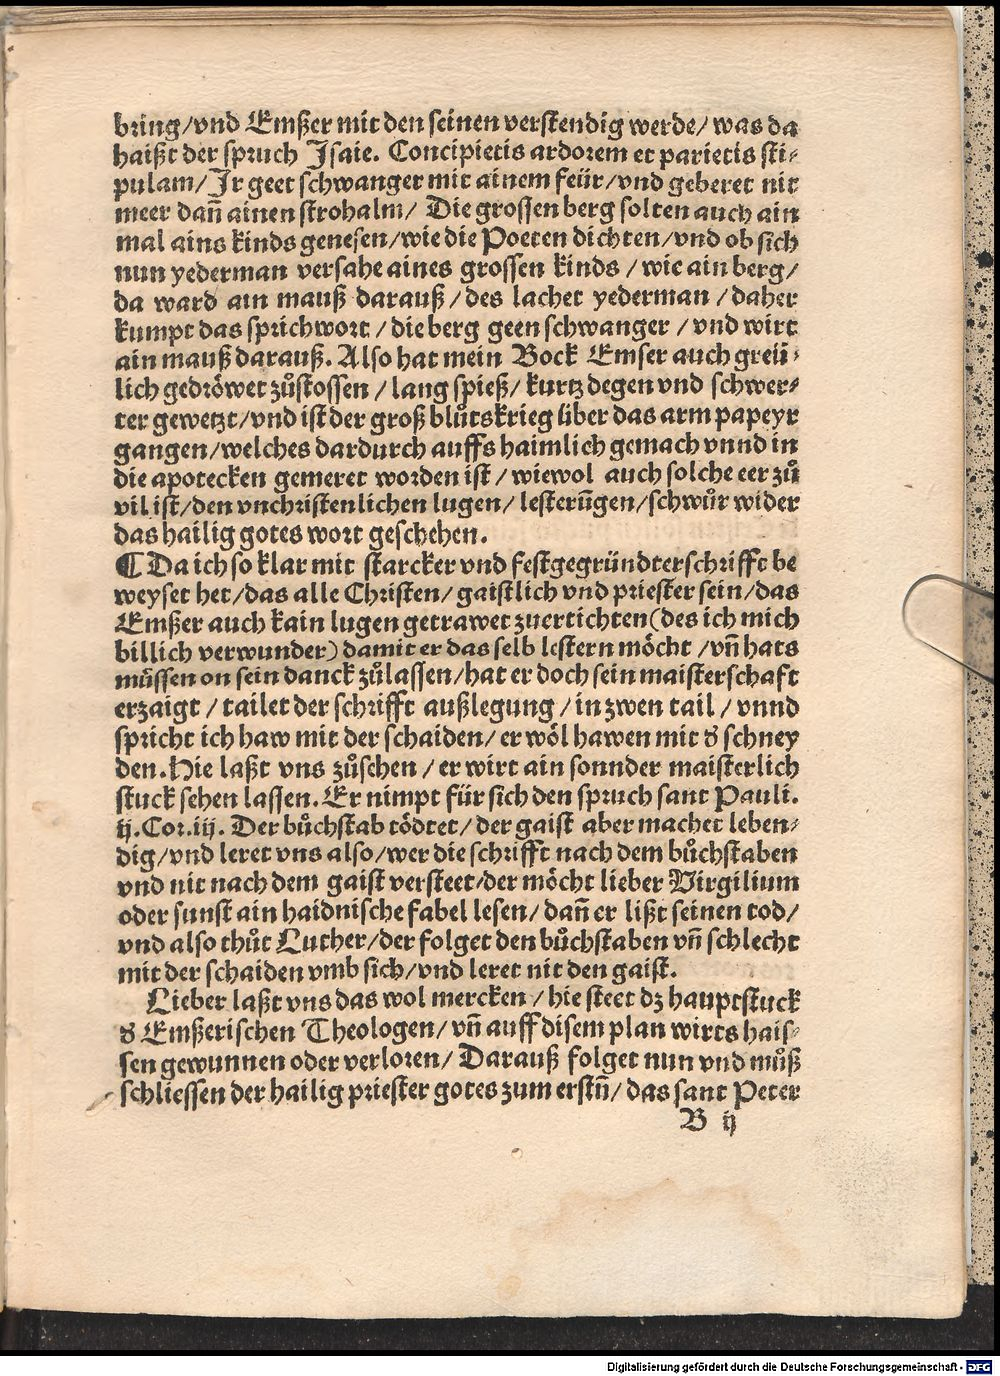 bring/vnd Emßer mit den seinen verstendig werde/ was da
haißt der spruch Jsaie. Concipietis ardorem et parietis sti-
pulam/ Jr geet schwanger mit ainem feür/vnd geberet nit
meer dañ ainen strohalm/ Die grossen berg solten auch ain
mal ains kinds genesen/wie die Poeten dichten/vnd ob sich
nun yederman versahe aines grossen kinds / wie ain berg/
da ward ain mauß darauß / des lachet yederman / daher
kumpt das sprichwort / die berg geen schwanger / vnd wirt
ain mauß darauß. Also hat mein Bock Emser auch greü-
lich gedröwet zůstossen / lang spieß/ kurtz degen vnd schwer-
ter gewetzt/vnd ist der groß blůtskrieg über das arm papeyr
gangen/welches dardurch auffs haimlich gemach vnnd in
die apotecken gemeret worden ist / wiewol auch solche eer zů
vil ist/den vnchristenlichen lugen/ lesterũgen/schwůr wider
das hailig gotes wort geschehen.
¶ Da ich so klar mit starcker vnd festgegründter schrifft be
weyset het/das alle Christen/ gaistlich vnd priester sein/das
Emßer auch kain lugen getrawet zuertichten(des ich mich
billich verwunder) damit er das selb lestern möcht /vñ hats
müssen on sein danck zůlassen/hat er doch sein maisterschaft
erzaigt / tailet der schrifft außlegung / in zwen tail / vnnd
spricht ich haw mit der schaiden/ er wöl hawen mit ď schney
den. Hie laßt vns zůsehen / er wirt ain sonnder maisterlich
stuck sehen lassen. Er nimpt für sich den spruch sant Pauli.
ij.Cor.iij. Der bůchstab tödtet/ der gaist aber machet leben-
dig/vnd leret vns also/wer die schrifft nach dem bůchstaben
vnd nit nach dem gaist versteet/der möcht lieber Virgilium
oder sunst ain haidnische fabel lesen/ dañ er lißt seinen tod/
vnd also thůt Luther/der folget den bůchstaben vñ schlecht
mit der schaiden vmb sich/vnd leret nit den gaist.
Lieber laßt vns das wol mercken / hie steet dz hauptstuck
ď Emßerischen Theologen/ vñ auff disem plan wirts hais-
sen gewunnen oder verloren/ Darauß folget nun vnd můß
schliessen der hailig priester gotes zum erstñ/ das sant Peter
B ij
Digitalisierung gefördert durch die Deutsche Forschungsgemeinschaft - DFG